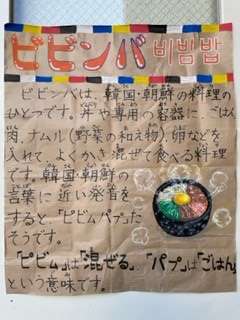 ビビンバ 비빔밥
ビビンバは、韓国・朝鮮の料理の
ひとつです。丼や専用の容器に、ごはん
肉、ナムル(野菜の和え物)卵などを
入れて、よくかき混ぜて食べる料理
です。韓国・朝鮮の
言葉に近い発音を
すると「ピビムパプ」だ
そうです。
「ピビム」は「混ぜる」、「パプ」は「ごはん」
という意味です。